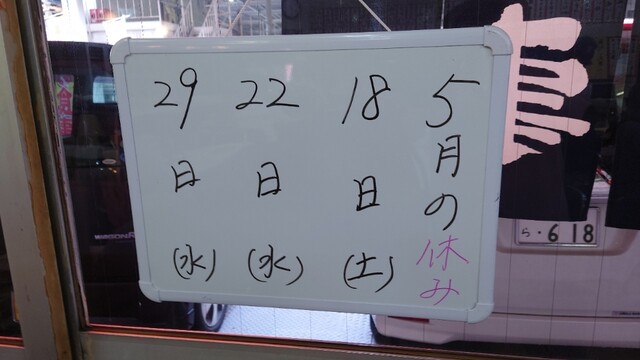 5月の休み
18日(土)
22日(水)
29日(水)
ら・618